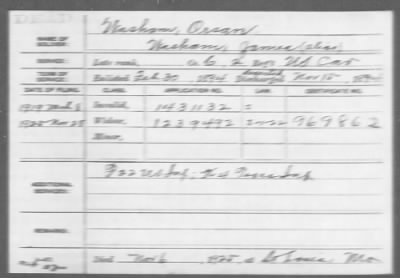 Washam, Orsan
NAME OF SOLDIER:
Washam, James (alias)
SERVICE: Late rank, Co. G, 2 Reg't US Cav
TERM OF SERVICE: Enlisted Feb. 20, 1894 Discharged Nov 15, 189
DATE OF FILING. CLASS. APPLICATION NO. LAW. CERTIFICATE NO.
1919 Invalid, 1431132 =
1925 Nov 25 Widow, 1239492 969862
Minor,
ADDITIONAL SERVICES: F 22 US Inf; Inf
REMARKS:
Died Nov 6, 1925, at St Louis Mo